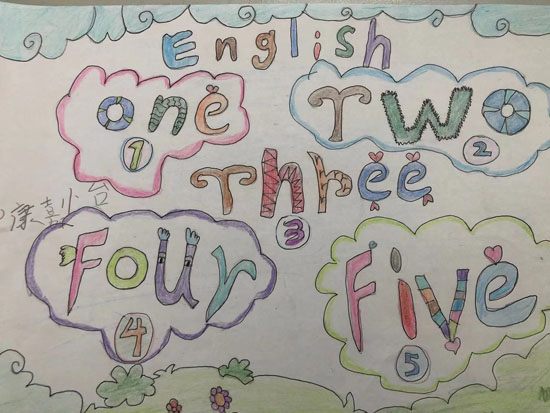 English
one
1
Two
2
Three
3
Four
4
Five
5